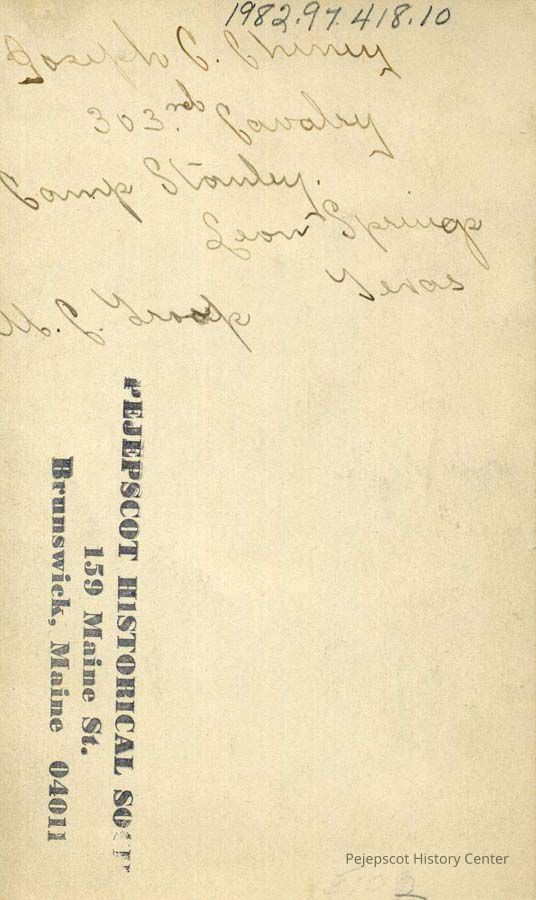 1982.97.418.10
Joseph C. Cheney
303.rd Cavalry
Camp Stanley.
Leon Springs
Texas
M. G. Troop
PEJEPSCOT HISTORICAL
159 Maine St.
Brunswick, Maine 04011
Pejepscot History Center